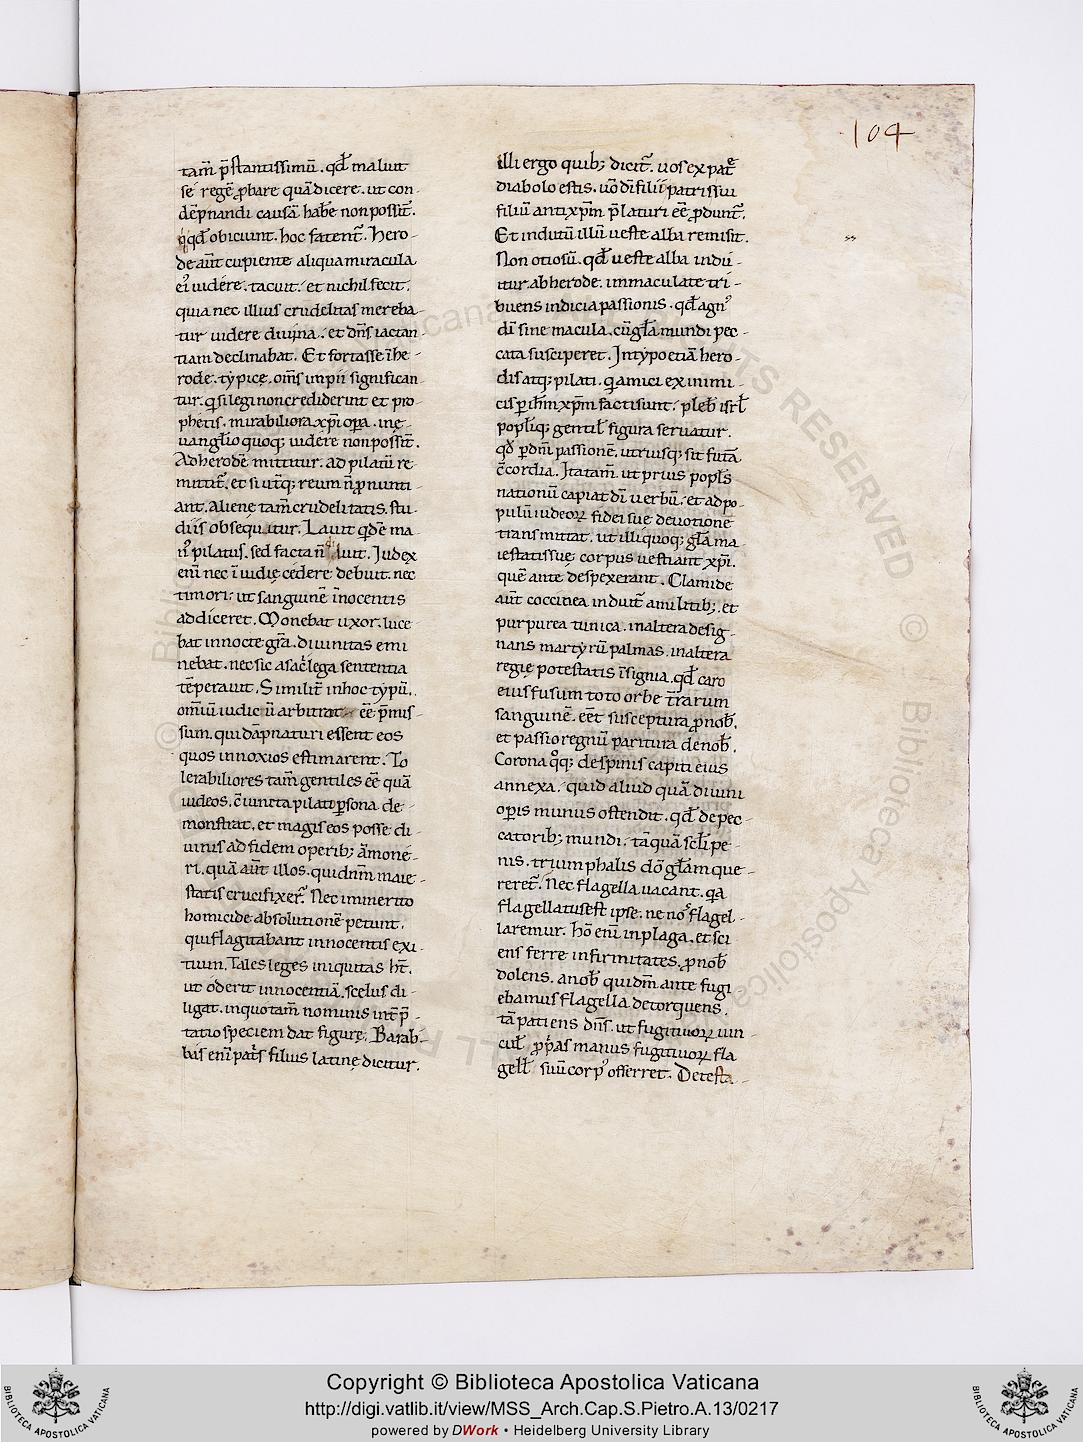 104
tam̄ p̄stantissimū. qđ maluit
se regē ꝓbare quā dicere. ut con-
dēpnandi causā habe᷒ non possit᷒.
qđ obiciunt. hoc fatent᷒. Hero-
de aut̄ cupiente aliqua miracula
ei᷒ uidere. tacuit. et nichil fecit.
quia nec illius crudelitas mereba
tur uidere diuina. et dn̄s iactan
tiam declinabat. Et fortasse īhe-
rode. typicę. om̄s impii significan-
tur. q̇ si legi non crediderint et pro-
phetis. mirabilia xp̄i oꝑa. in ę-
uangl̄io quoq; uidere non possit᷒.
Ad herodē mittitur. ad pilatū re-
mittit᷒. et si utq; reum n̄ ꝓnunti-
ant. alienę tam̄ crudelitatis. stu-
diis obsequuntur. Lauit qdē ma
n᷒ pilatus. sed facta n̄ luit. Judex
eni᷒ nec ī uidię cedere debuit. nec
timori. ut sanguinē īnocentis
addiceret. Monebat uxor. luce
bat in nocte gr̄a. diuinitas emi
nebat. nec sic a sac̓lega sententia
tēperauit. Similit᷒ in hoc typū.
om̄iū iudicū arbitrat᷒ eē p̄mis-
sum. qui dāpnaturi essent eos
quos innoxios estimarent. To
lerabiliores tam̄ gentiles eē quā
iudeos. ē iuncta pilato ꝑsona de-
monstrat. et magis eos posse di-
uinis ad fidem operib; āmone-
ri. quā aut̄ illos. qui dn̄m maie-
statis crucifixer᷒. Nec inmerito
homicide absolutionē petunt.
qui flagitabant innocentis exi-
tium. Tales leges iniquitas ht̄.
ut oderit innocentiā. scelus di-
ligat. in quo tam̄ nominis int̄p̄-
tatio speciem dat figurę. Barab-
bas eni᷒ pat̓s filius latinę dicitur.
illi ergo quib; dicit᷒. uos ex pat̄e
diabolo estis. uō dī filii patri ssui
filiū antixp̄m p̄laturi eē ꝓdunt᷒.
Et indutū illū ueste alba remisit.
Non otiosū. qđ ueste alba indu-
itur ab herode. immaculate tri-
buens indicia passionis. qđ agn᷒
dī sine macula. cū gl̄a mundi pec-
cata susciperet. In typo etiā hero-
dis atq; pilati. q̇ amici ex inimi-
cis ꝑ ih̄m xp̄m facti sunt. pleb᷒ isrl̄
popl̄iq; gentil᷒ figura seruatur.
qđ ꝑ dn̄i passionē. utriusq; sit futā
c̄cordia. Ita tam̄. ut prius popl̄s
nationū capiat dī uerbū. et ad po-
pulū iudeoꝝ fidei sue deuotione
transmittat. ut illi quoq; gl̄a ma-
iestatis suę. corpus uestiant xp̄i.
quē ante despexerant. Clamide
aut̄ coccinea induit᷒ a militib;. et
purpurea tunica. in altera desig-
nans martyrū palmas. in altera
regię potestatis īsignia. qđ caro
eius fusum toto orbe t̄rarum
sanguinē. eēt susceptura ꝓ nob᷒.
et passio regnū paritura de nob᷒.
Corona qq; de spinis capiti eius
annexa. quid aliud quā diuini
oꝑis munus ostendit. qđ de pec-
catorib; mundi. tā quā scl̄i pe-
nis. triumphalis dō gl̄am que-
reret᷒. Nec flagella uacant. qa
flagellatus est ipse. ne nos flagel-
laremur. hō eni᷒ in plaga. et sci
ens ferre infirmitates. ꝓ nob᷒
dolens. a nob᷒ quidm̄ ante fugi
ebamus flagella detorquens.
tā patiens dn̄s. ut fugitiuoꝝ uin-
cul᷒ ꝓp̓as manus fugitiuoꝝ fla
gell᷒ suū corp᷒ offerret. Detesta-
Copyright © Biblioteca Apostolica Vaticana
http://digi.vatlib.it/view/MSS_Arch.Cap.S.Pietro.A.13/0217
powered by DWork • Heidelberg University Library